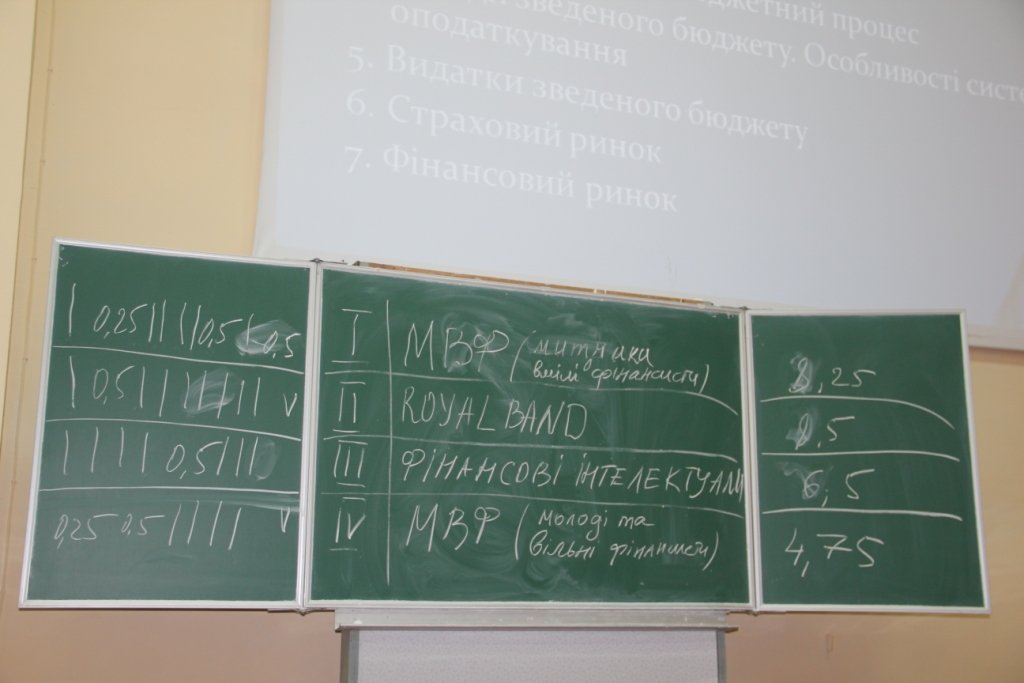 бюджетний процес
зведеного бюджету. Особливості
оподаткування
5. Видатки зведеного бюджету
6. Страховий ринок
7. Фінансовий ринок
| 0,25 | | | | 0,5 | 0,5
I МВФ (
вмілі фінансисти)
,25
| 0,5 | | | | | | | V
II ROYAL BAND
,5
| | | | | 0,5 | | |
III ФІНАНСОВІ ІНТЕЛЕКТУАЛИ
6,5
0,25 0,5 | | | | V
IV МВФ (молоді та
вільні фінансисти)
4,75